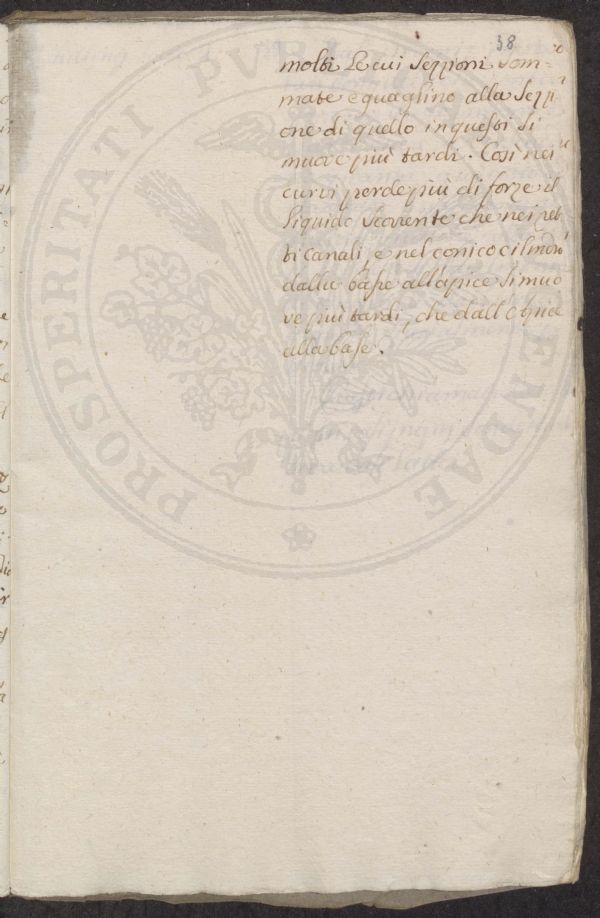 38
molti le cui sezzioni som=
mate equaglino alla sezzi
one di quello in questi si
muove più tardi. Così nei
curvi perde più di forze il
liquido scorrente che nei ret
ti canali, e nel conico cilindro
dalla base all'apice si muo
ve più tardi, che dall'apice
alla base.
PROSPERITATI PUBLICAE AUGENDAE